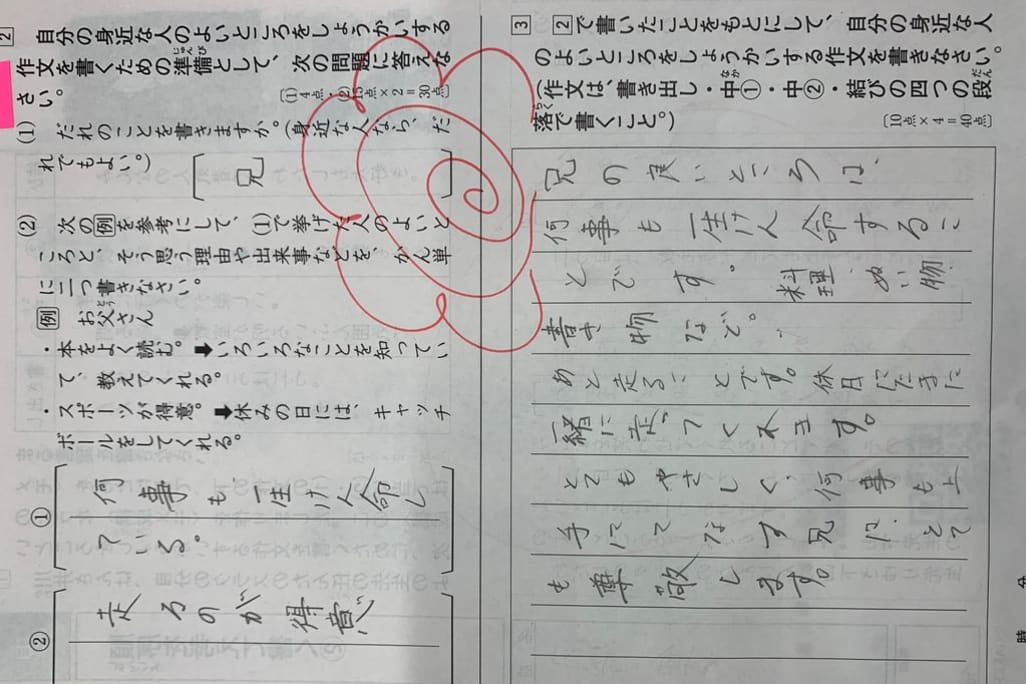 2 自分の身近な人のよいところをしょうかいする
作文を書くための準備として、次の問題に答えな
じゅんび
さい。
〔(1) 4点・(2)13点×2=30点〕
(1) だれのことを書きますか。(身近な人なら、だ
れでもよい。)
〔兄〕
(2) 次の例を参考にして、(1)で挙げた人のよいと
ころと、そう思う理由や出来事などを、かん単
に二つ書きなさい。
例 お父さん
とう
・本をよく読む。➡いろいろなことを知ってい
て、教えてくれる。
・スポーツが得意。➡休みの日には、キャッチ
ボールをしてくれる。
① 何事も、一生けん命し
ている。
② 走るのが得意
3 2で書いたことをもとにして、自分の身近な人
のよいところをしょうかいする作文を書きなさい。
(作文は、書き出し・中①・中②・結びの四つの段
なか だん
落で書くこと。)
らく
〔10点×4=40点〕
兄の良いところは、
何事も一生けん命するこ
とです。料理、ぬい物、
書き物など。
あと走ることです。休日にたまに
一緒に走ってくれます。
とてもやさしく、何事も上
手にこなす兄に、とて
も尊敬します。